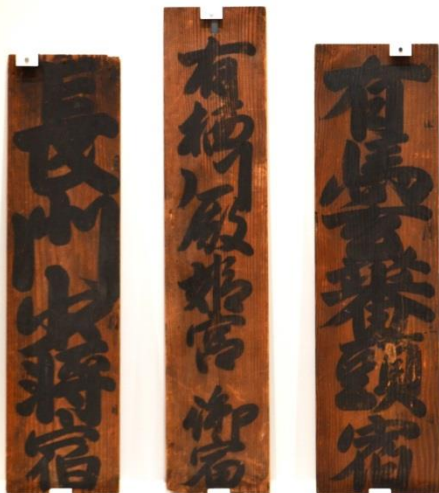 有馬玄蕃頭宿
有栖川殿姫宮 御宿
長門少將宿